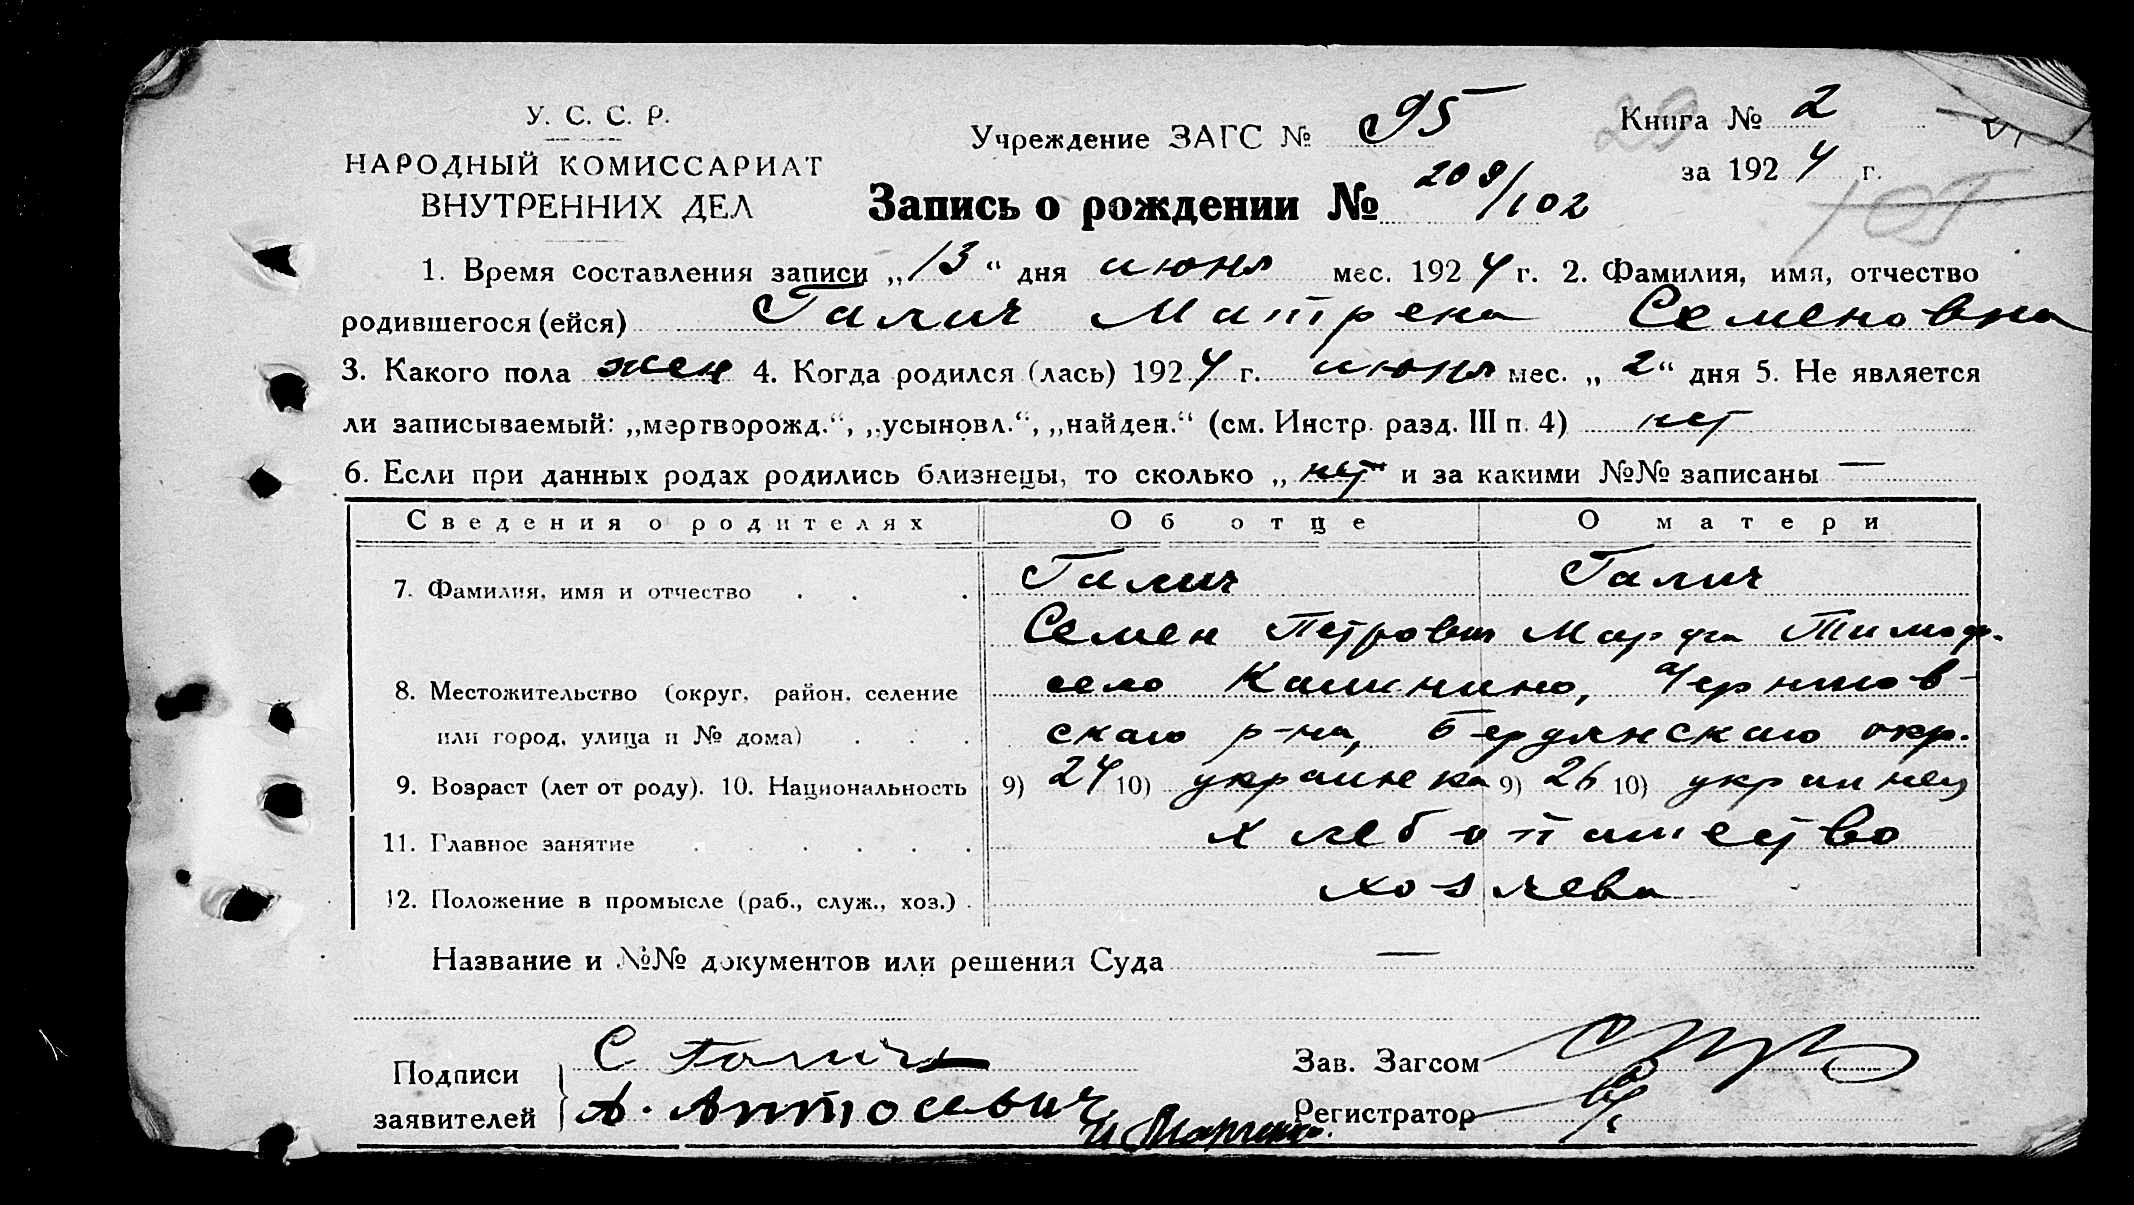 У. С. С. Р.
НАРОДНЫЙ КОМИССАРИАТ
ВНУТРЕННИХ ДЕЛ
Учреждение ЗАГС № 95
Книга № 2
за 1924 г.
Запись о рождении № 209/102
105
1. Время составления записи „13“ дня июня мес. 1924 г. 2. Фамилия, имя, отчество
родившегося (ейся) Галич Матрена Семеновна
3. Какого пола жен 4. Когда родился (лась) 1924 г. июня мес. „2“ дня 5. Не является
ли записываемый: „мертворожд.“, „усыновл.“, „найден.“ (см. Инстр. разд. III п. 4) нет
6. Если при данных родах родились близнецы, то сколько „нет“ и за какими №№ записаны —
Сведения о родителях Об отце О матери
7. Фамилия, имя и отчество . . . Галич Галич
Семен Петрович Марфа Тимоф.
8. Местожительство (округ, район, селение село Чернигов-
или город, улица и № дома) . . . скаго р-на, Бердянскаго окр.
9. Возраст (лет от роду). 10. Национальность 9) 24 10) украинка 9) 26 10) украинец
11. Главное занятие . . . . . . хлебопашество
12. Положение в промысле (раб., служ., хоз.) . хозяева
Название и №№ документов или решения Суда —
Подписи заявителей } С Галич
А. Антосевич
Зав. Загсом
Регистратор